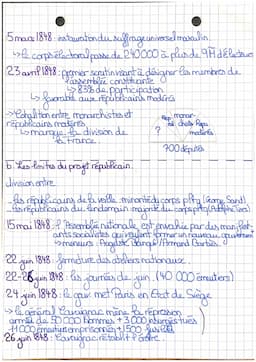 5 mars 1848 : instauration du suffrage universel masculin
↳ le corps électoral passe de 240 000 à plus de 9M d'électeurs
23 avril 1848 : premier scrutin visant à désigner les membres de
l'assemblée constituante
↳ 83% de participation
↳ favorable aux républicains modérés
↳ Coalition entre monarchistes et
républicains modérés
↳ marque la division de
la France.
Rep
?
monar-
chistes
Repu
modérés
900 députés
b. Les limites du projet républicain.
division entre
- les républicains de la veille minorité du corps pltq (George Sand)
- les républicains du lendemain majorité du corps pltq (Adolphe Thiers)
15 mai 1848 : l'Assemblée nationale est envahie par des manifest-
ants socialistes qui veulent former un nouveau gouvernement
↳ meneurs : Auguste Blanqui / Armand Barbès.
22 juin 1848 : fermeture des ateliers nationaux.
22-26 juin 1848 : les journées de juin (40 000 émeutiers)
24 juin 1848 : le gouv met Paris en État de Siège
↳ le général Cavaignac mène la répression
armée de 50 000 hommes + 3 000 insurgés tués
11 000 emprisonnés + 1500 fusillés
26 juin 1848 : Cavaignac rétablit l'ordre.